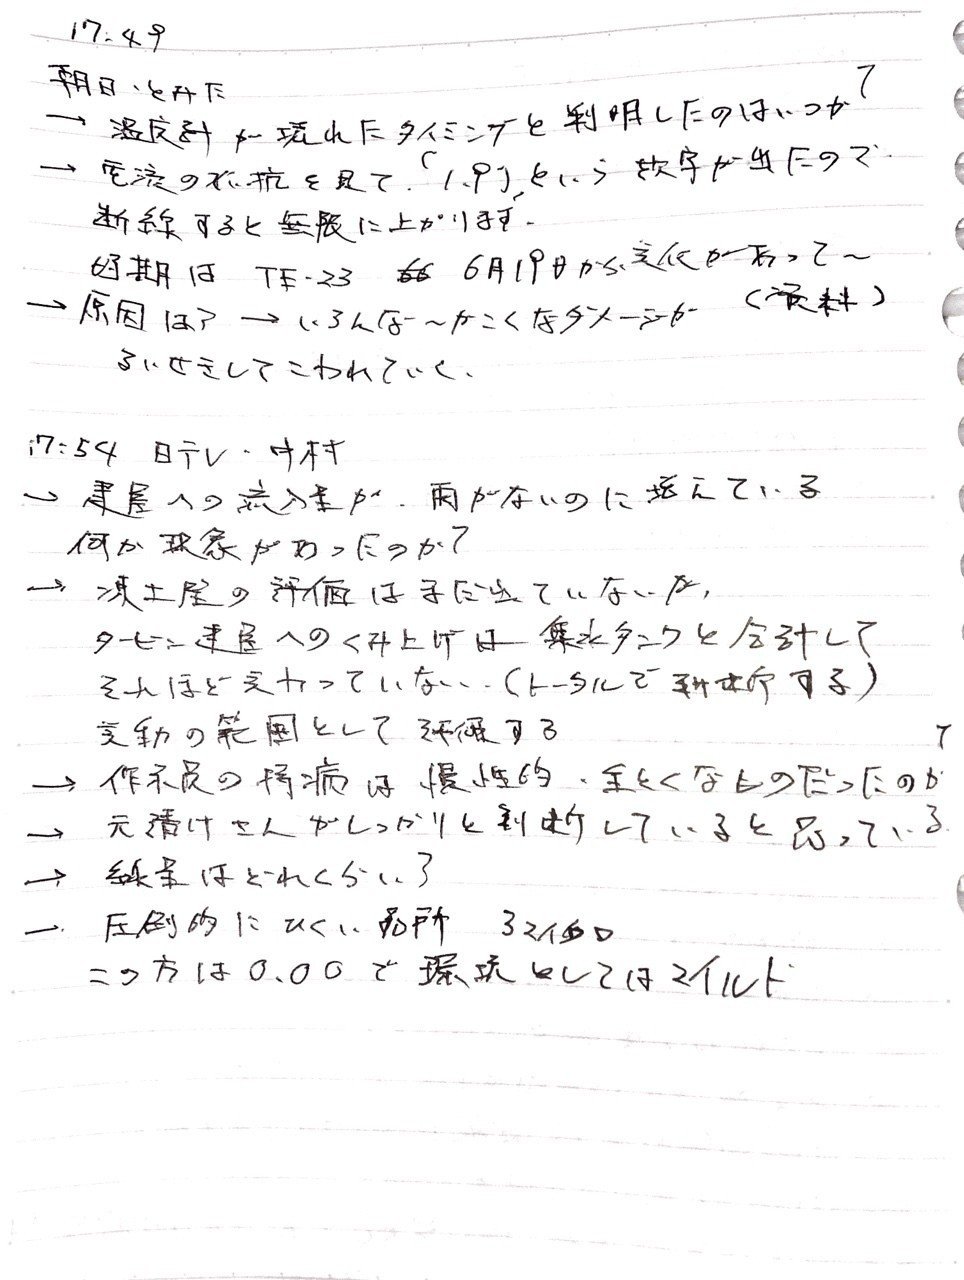 17:49
朝日・とみた
→ 温度計が壊れたタイミングと判明したのはいつか?
→ 電流の抵抗を見て、「1.9」という数字が出たので
断線すると無限に上がります。
時期は TE-23 6月19日から変化があって〜
(資料)
→ 原因は? → いろんな〜かこくなダメージが
るいせきしてこわれていく。
17:54 日テレ・中村
→ 建屋への流入量が、雨がないのに増えている
何か現象があったのか?
→ 凍土壁の評価はまだ出ていないが、
タービン建屋へのくみ上げは集水タンクと合計して
それほど変わっていない。(トータルで判断する)
変動の範囲として評価する
→ 作業員の持病は慢性的・重とくなものだったのか?
→ 元請けさんがしっかりと判断していると思っている
→ 線量はどれくらい?
→ 圧倒的にひくい場所 3マイクロ
この方は0.00で環境としてはマイルド